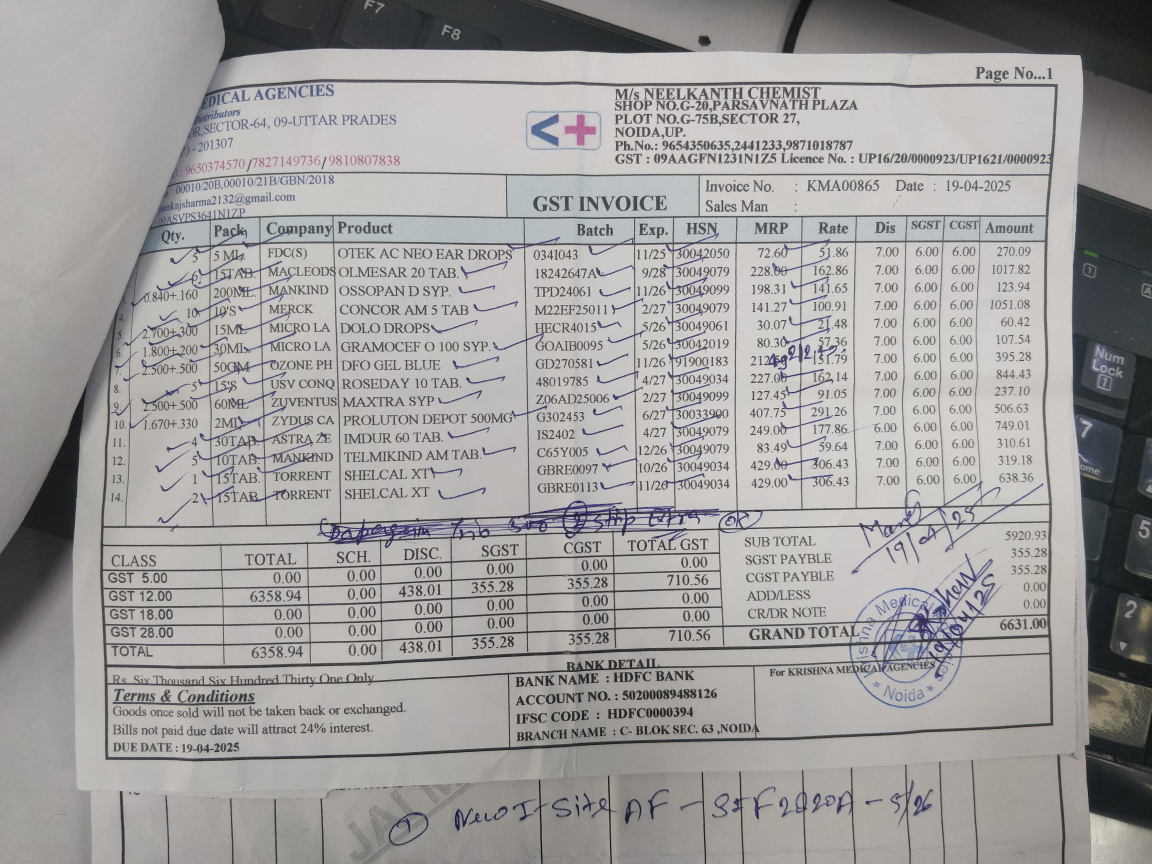 F7
F8
Page No...1
EDICAL AGENCIES
Distributors
OR,SECTOR-64, 09-UTTAR PRADES
- 201307
: 9650374570/7827149736/9810807838
: 00010/20B,00010/21B/GBN/2018
ankajsharma2132@gmail.com
09ASVPS3641N1ZP
M/s NEELKANTH CHEMIST
SHOP NO.G-20,PARSAVNATH PLAZA
PLOT NO.G-75B,SECTOR 27,
NOIDA,UP.
Ph.No.: 9654350635,2441233,9871018787
GST : 09AAGFN1231N1Z5 Licence No. : UP16/20/0000923/UP1621/0000923
GST INVOICE
Invoice No. : KMA00865 Date : 19-04-2025
Sales Man :
Qty. Pack Company Product Batch Exp. HSN MRP Rate Dis SGST CGST Amount
5 5 ML FDC(S) OTEK AC NEO EAR DROPS 034I043 11/25 30042050 72.60 51.86 7.00 6.00 6.00 270.09
6 15TAB. MACLEODS OLMESAR 20 TAB. 18242647A 9/28 30049079 228.00 162.86 7.00 6.00 6.00 1017.82
3. 0.840+.160 200ML. MANKIND OSSOPAN D SYP. TPD24061 11/26 30049099 198.31 141.65 7.00 6.00 6.00 123.94
4. 10 10'S MERCK CONCOR AM 5 TAB M22EF25011 2/27 30049079 141.27 100.91 7.00 6.00 6.00 1051.08
5. 2.700+.300 15ML MICRO LA DOLO DROPS HECR4015 5/26 30049061 30.07 21.48 7.00 6.00 6.00 60.42
6. 1.800+.200 30ML MICRO LA GRAMOCEF O 100 SYP. GOAIB0095 5/26 30042019 80.30 57.36 7.00 6.00 6.00 107.54
7. 2.500+.500 50GM OZONE PH DFO GEL BLUE GD270581 11/26 91900183 151.79 7.00 6.00 6.00 395.28
8. 5 15'S USV CONQ ROSEDAY 10 TAB. 48019785 4/27 30049034 227.00 162.14 7.00 6.00 6.00 844.43
9. 2.500+.500 60ML ZUVENTUS MAXTRA SYP Z06AD25006 2/27 30049099 127.45 91.05 7.00 6.00 6.00 237.10
10. 1.670+.330 2ML ZYDUS CA PROLUTON DEPOT 500MG G302453 6/27 30033900 407.75 291.26 7.00 6.00 6.00 506.63
11. 4 30TAB ASTRA ZE IMDUR 60 TAB. IS2402 4/27 30049079 249.00 177.86 7.00 6.00 6.00 749.01
12. 5 10TAB MANKIND TELMIKIND AM TAB. C65Y005 12/26 30049079 83.49 59.64 7.00 6.00 6.00 310.61
13. 1 15TAB. TORRENT SHELCAL XT GBRE0097 10/26 30049034 429.00 306.43 7.00 6.00 6.00 319.18
14. 2 15TAB TORRENT SHELCAL XT GBRE0113 11/26 30049034 429.00 306.43 7.00 6.00 6.00 638.36
Extra OK
19/04/25
CLASS TOTAL SCH. DISC. SGST CGST TOTAL GST
GST 5.00 0.00 0.00 0.00 0.00 0.00 0.00
GST 12.00 6358.94 0.00 438.01 355.28 355.28 710.56
GST 18.00 0.00 0.00 0.00 0.00 0.00 0.00
GST 28.00 0.00 0.00 0.00 0.00 0.00 0.00
TOTAL 6358.94 0.00 438.01 355.28 355.28 710.56
SUB TOTAL 5920.93
SGST PAYBLE 355.28
CGST PAYBLE 355.28
ADD/LESS 0.00
CR/DR NOTE 0.00
GRAND TOTAL 6631.00
Rs. Six Thousand Six Hundred Thirty One Only
Terms & Conditions
Goods once sold will not be taken back or exchanged.
Bills not paid due date will attract 24% interest.
DUE DATE : 19-04-2025
BANK DETAIL
BANK NAME : HDFC BANK
ACCOUNT NO. : 50200089488126
IFSC CODE : HDFC0000394
BRANCH NAME : C- BLOK SEC. 63 ,NOIDA
For KRISHNA MEDICAL AGENCIES
Krishna Medical
Noida
19/04/25
JAI M
① New I-Site AF - SIF2020A - 5/26
Num
Lock
1
7
5
2